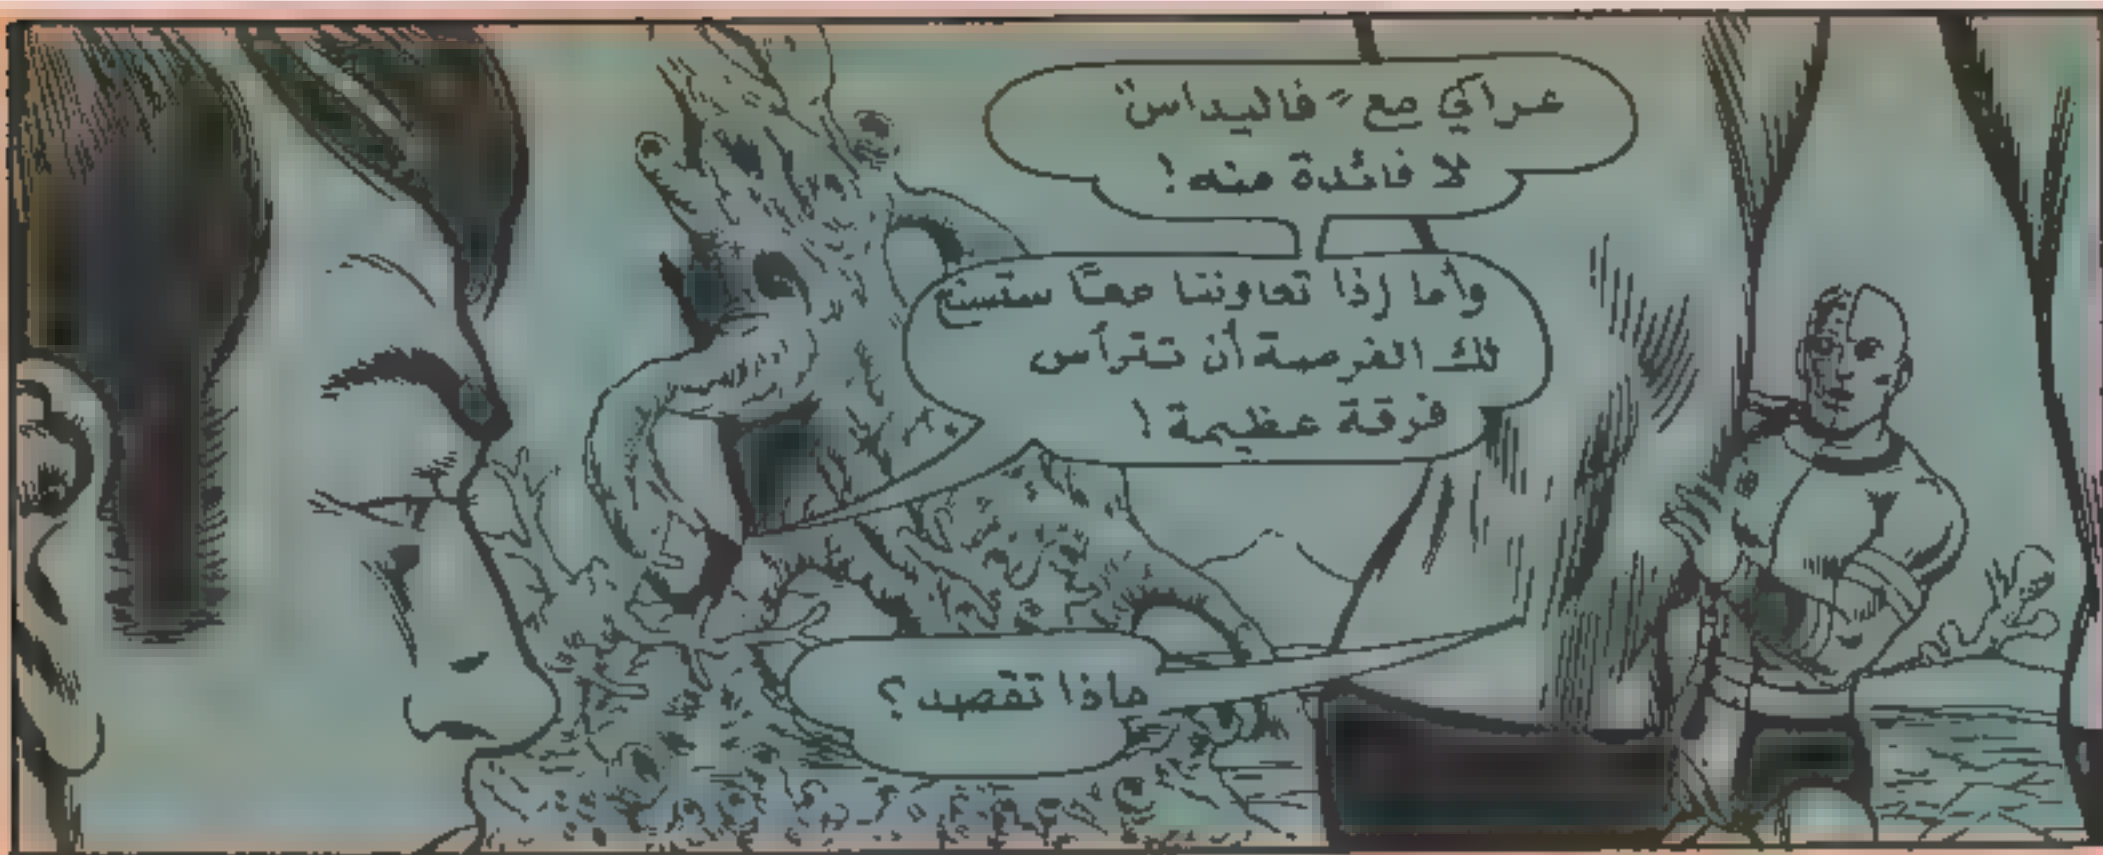 عراكي مع "فاليداس"
لا فائدة منه!
وأما إذا تعاوننا معًا ستسنح
لك الفرصة أن تترأس
فرقة عظيمة!
ماذا تقصد؟